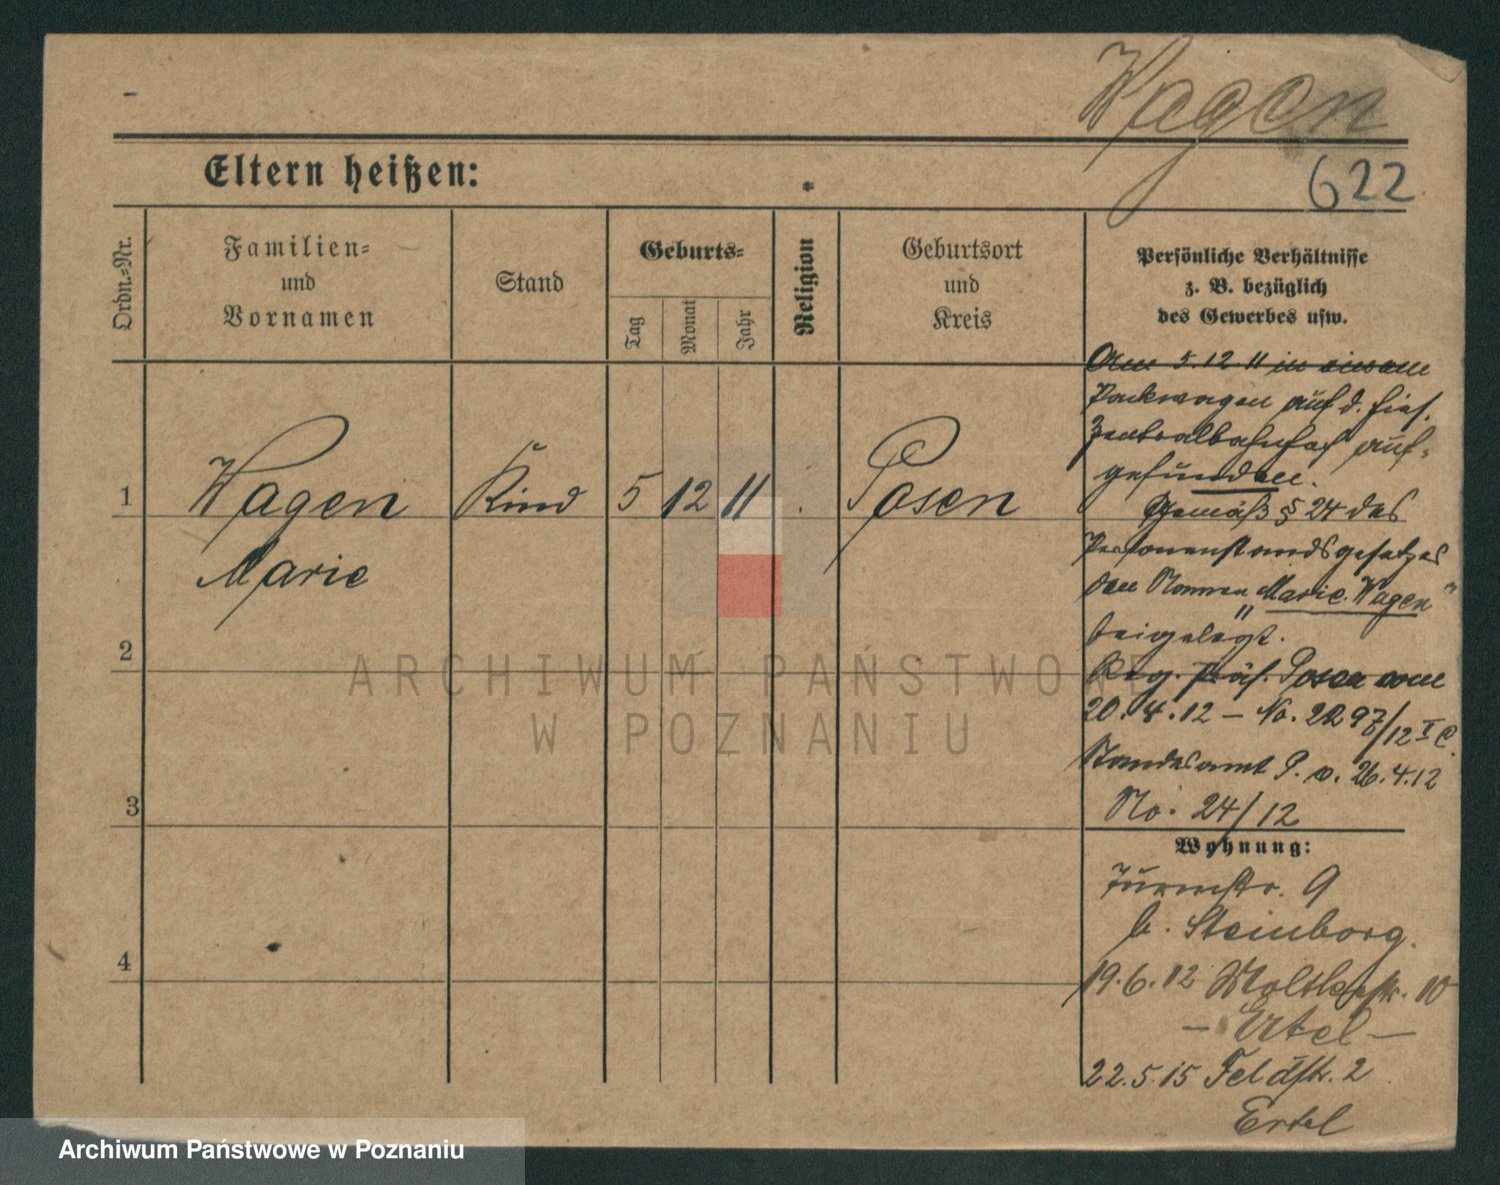 Wagen
622
Eltern heißen:
Ordn.-Nr.
Familien-
und
Vornamen
Stand
Geburts-
Tag
Monat
Jahr
Religion
Geburtsort
und
Kreis
Persönliche Verhältnisse
z. B. bezüglich
des Gewerbes usw.
1
Wagen Kind 5 12 11 Posen
Marie
2
3
4
Am 5.12.11 in einem
Packwagen auf d. hies.
Zentralbahnhof auf-
gefunden.
Gemäß § 24 des
Personenstandsgesetzes
den Namen „Marie Wagen"
beigelegt.
Reg. Präs. Posen vom
20.4.12 – No. 2297/12 I C.
Standesamt P. v. 26.4.12
No. 24/12
Wohnung:
Turmstr. 9
b. Steinborg.
19.6.12 Moltkestr. 10
– Ertel –
22.5.15 Feldstr. 2
Ertel
ARCHIWUM PAŃSTWOWE
W POZNANIU
Archiwum Państwowe w Poznaniu